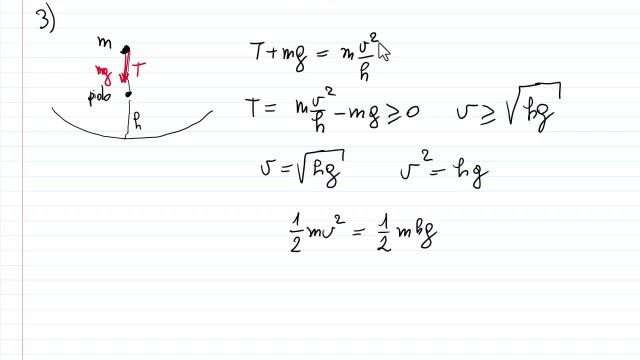 3)
m
mg T
piolo
h
T + mg = m v²/h
T = m v²/h − mg ≥ 0 v ≥ √hg
v = √hg v² = hg
1/2 mv² = 1/2 mhg